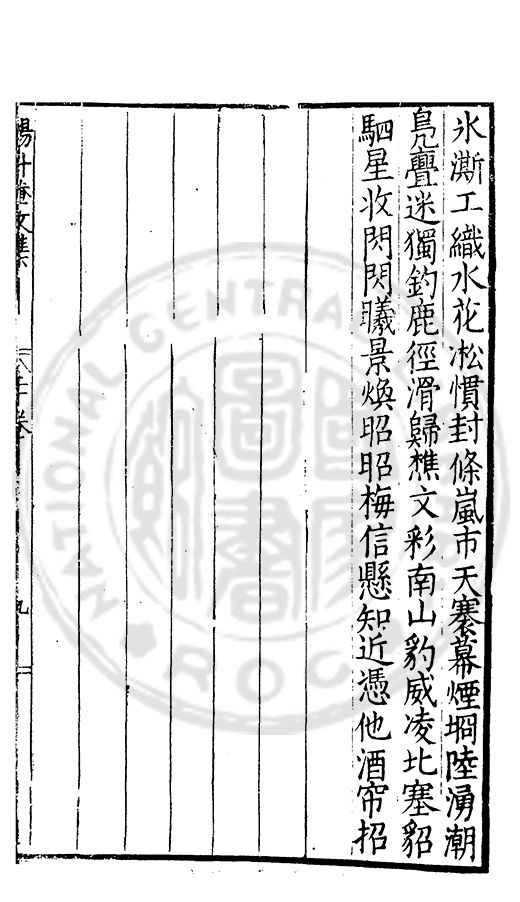 氷澌工織水花凇慣封條嵐市天褰幕煙堈陸湧潮
鳧亹迷獨釣鹿徑滑歸樵文彩南山豹威凌北塞貂
駟星收閃閃曦景煥昭昭梅信懸知近憑他酒帘招
楊升庵文集
卷
九
NATIONAL CENTRAL